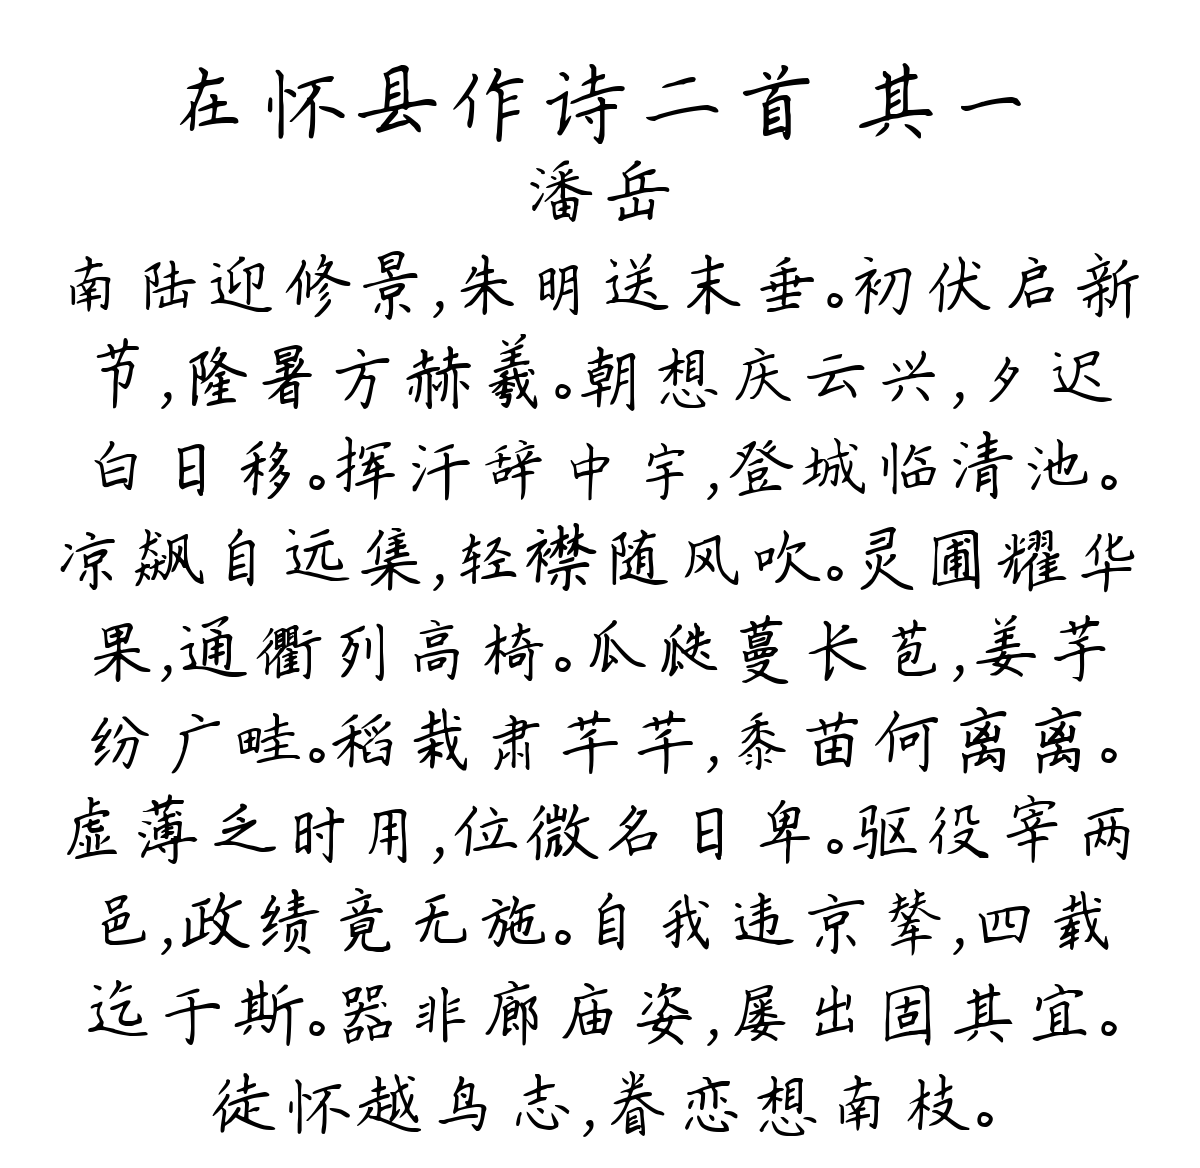 在怀县作诗二首 其一
潘岳
南陆迎修景,朱明送末垂。初伏启新
节,隆暑方赫羲。朝想庆云兴,夕迟
白日移。挥汗辞中宇,登城临清池。
凉飙自远集,轻襟随风吹。灵圃耀华
果,通衢列高椅。瓜瓞蔓长苞,姜芋
纷广畦。稻栽肃芊芊,黍苗何离离。
虚薄乏时用,位微名日卑。驱役宰两
邑,政绩竟无施。自我违京辇,四载
迄于斯。器非廊庙姿,屡出固其宜。
徒怀越鸟志,眷恋想南枝。